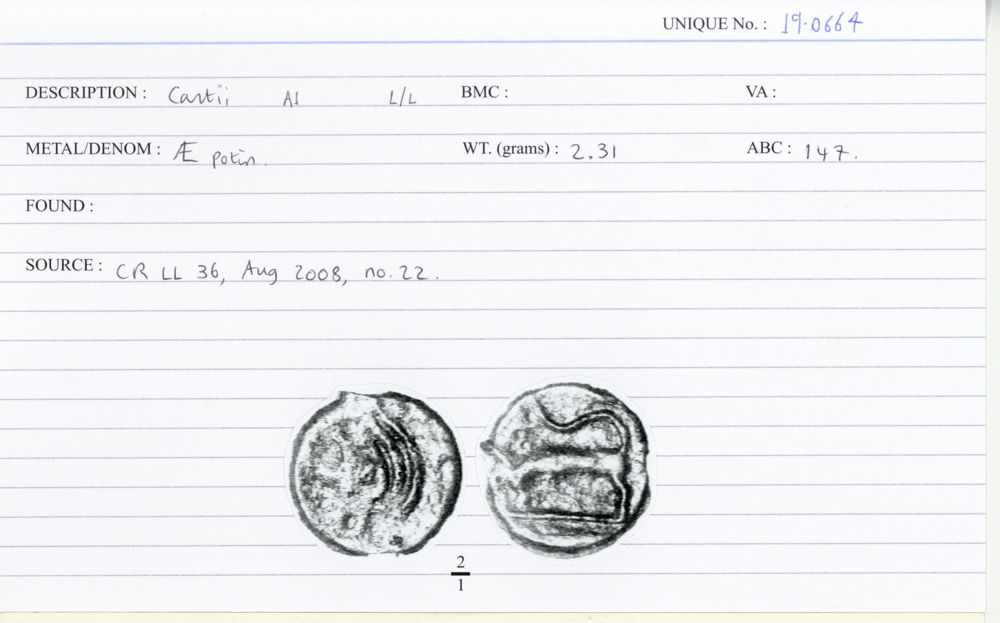 UNIQUE No. : 19.0664
DESCRIPTION : Cantii A1 L/L BMC : VA :
METAL/DENOM : Æ potin. WT. (grams) : 2.31 ABC : 147.
FOUND :
SOURCE : CR LL 36, Aug 2008, no. 22.
2
1